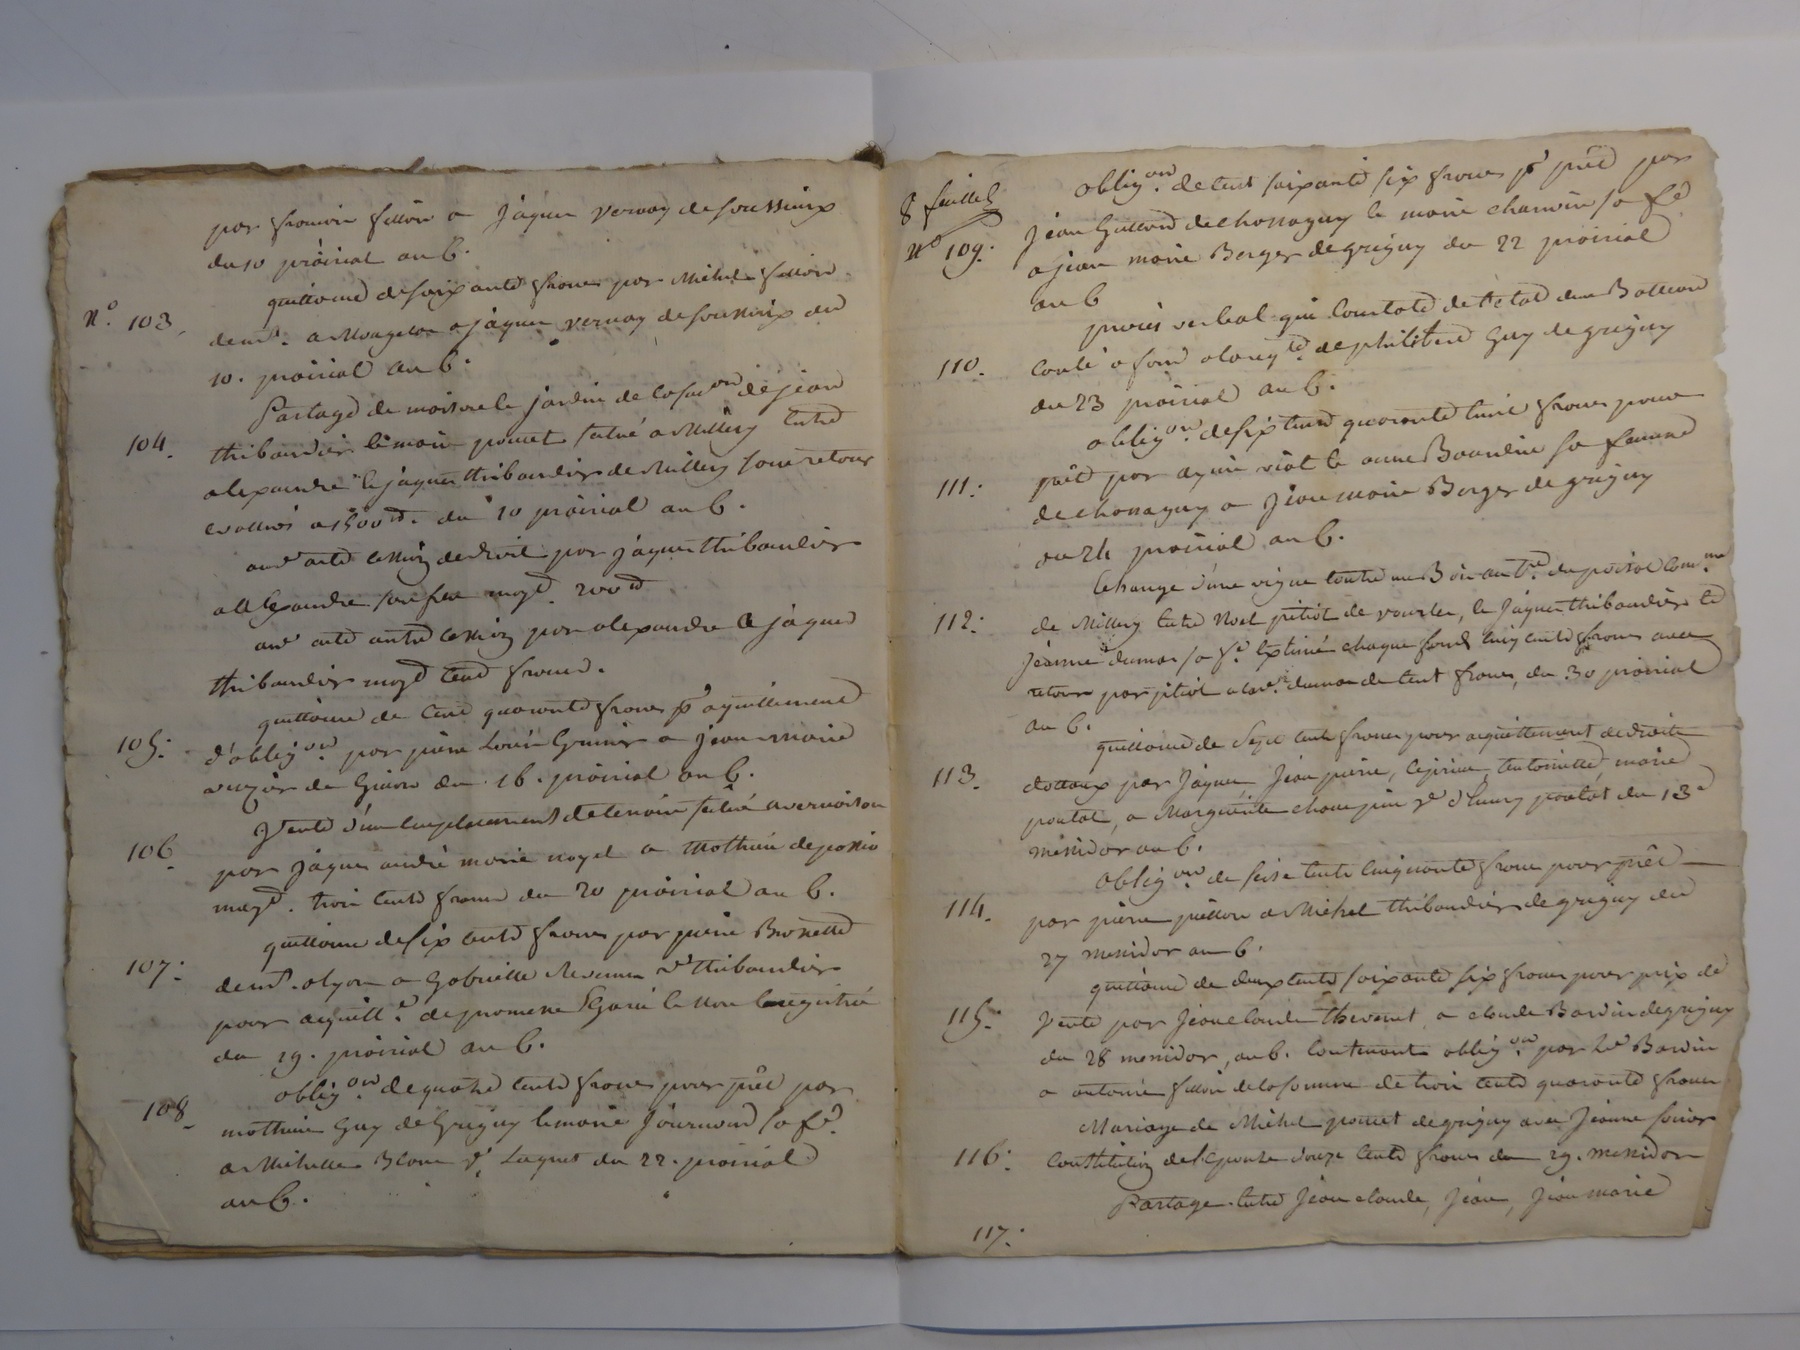 par françois fillion a Jâques vernay de soussieux
du 10 prairial an 6.
quittance de soixante francs par Michel fillion
N.° 103. demt. a Mongelon a jâques vernay de soussieux du
10. prairial an 6.
Partage de maison et jardin de la succon de jean
104. thibaudier et marie poncet situé a Millery entre
alexandre et jâques thibaudier de Millery sous retour
evallués a 1500tt. du 10 prairial an 6.
autre acte cession de droit par jâques thibaudier
a allexandre son frère moyt. 200tt
autre acte cession par alexandre a jâques
thibaudier moyt cent francs.
quittance de cent quarante francs pr aquittement
105. d'obligon. par pierre Louis Grenier a jean marie
du 16. prairial an 6.
Vente d'un emplacement de terrain situé a vernaison
106. par jâques andré marie noyel a mathieu
moyt. trois cents francs du 20 prairial an 6.
quittance de six cents francs par pierre Bronette
107. demt. a lyon a Gabrielle ve thibaudier
pour aquitt.t de promesse Egaré et non enregistrée
du 19. prairial an 6.
obligon. de quatre cents francs pour prêt par
108. mathieu Guy de Grigny et marie journoud sa fe.
a Michelle Blanc ve Laquet du 22. prairial
an 6.
8 feuillet
obligon. de cent soixante six francs pr prêt par
N° 109. jean Guttond de chassagny et marie charvin sa fe
a jean marie Berger de grigny du 22 prairial
an 6
procès verbal qui constate de l'etat d'un Batteau
110. coulé a fond a la reqte. de philibert Guy de grigny
du 23 prairial an 6.
obligon. de six cents quarante huit francs pour
111. prêt par aymé viot et anne Baudin sa femme
de chassagny a Jean marie Berger de grigny
du 24 prairial an 6.
Echange d'une vigne contre un Bois au tre. du poizat comune.
112. de Millery entre Noel pitiot de vourles, et Jâques thibaudier et
Jeanne dumas sa fe. Extimé chaque fonds cinq cents francs avec
retour par pitiot dumas de cent francs, du 30 prairial
an 6.
quittance de Sept cents francs pour aquittement de droits
113. dottaux par Jâques, Jean pierre, antoinette, marie
poutat, a Marguerite champin ve d'henry poutat du 13e
messidor an 6.
Obligon de seize cents cinquante francs pour prêt
114. par pierre pitton a Michel thibaudier de grigny du
27 messidor an 6.
quittance de deux cents soixante six francs pour prix de
115. Vente par Jean claude thevenet, a claude Bardin de grigny
du 28 messidor, an 6. contenant obligon. par led Bardin
a antoine fillion de la somme de trois cents quarante francs
Mariage de Michel poncet de grigny avec Jeanne
116. Constitution de l'Epouse douze cents francs du 29. messidor
Partage entre Jean claude, Jean, Jean marie
117.